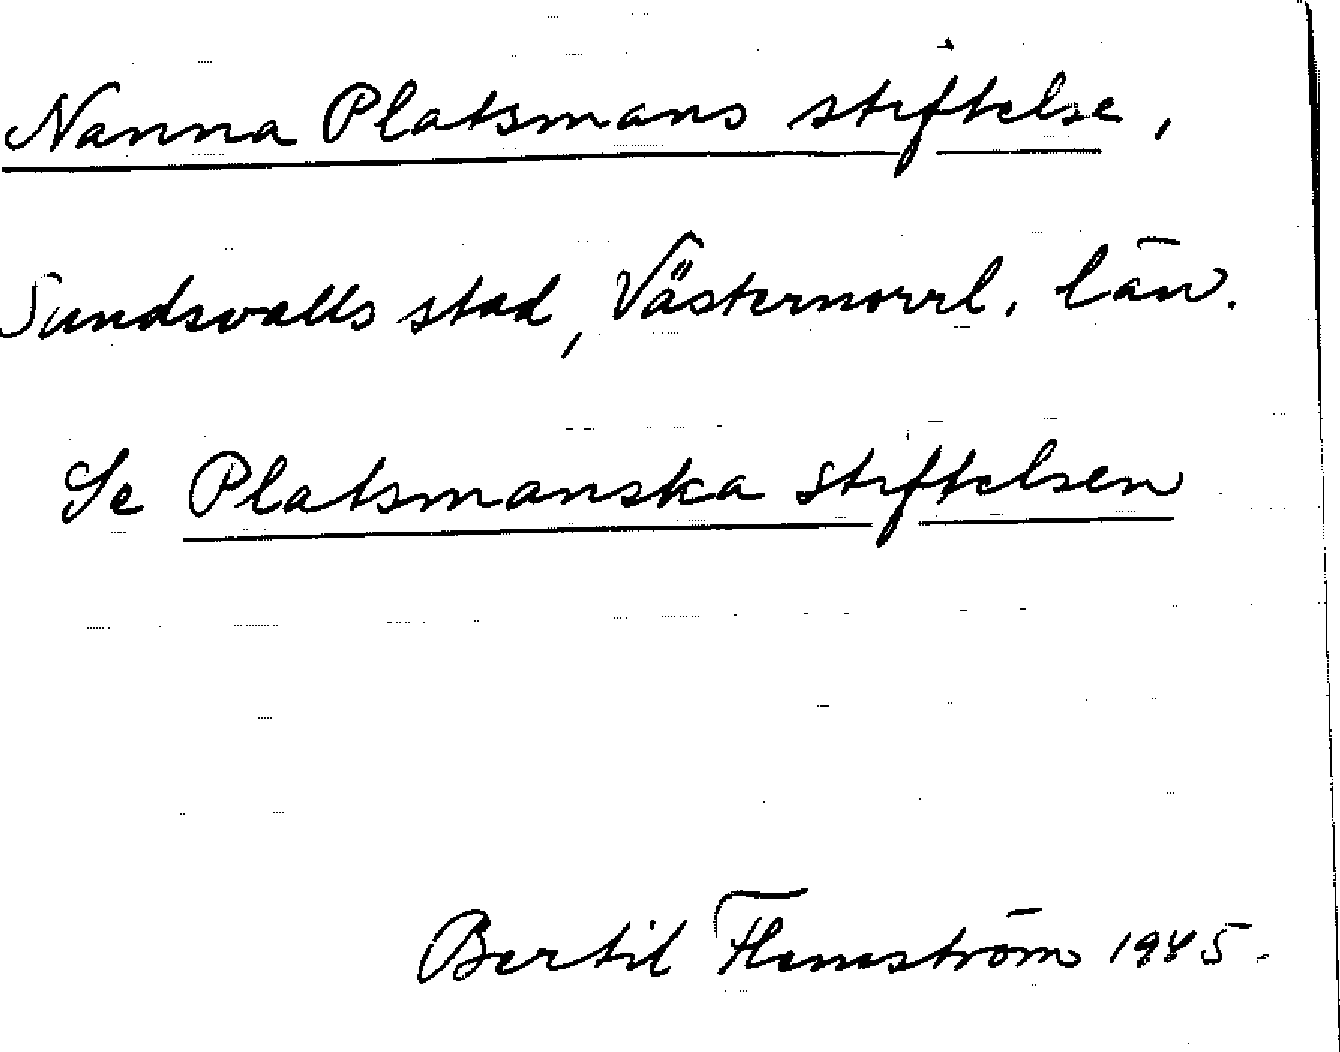 Nanna Platsmans stiftelse,
Sundsvalls stad, Västernorrl. län.
Se Platsmanska stiftelsen
Bertil Flemström 1985.